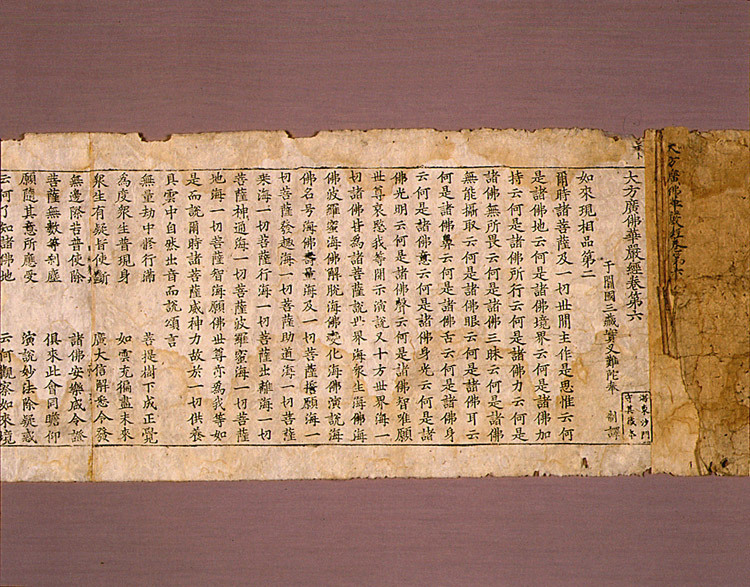 大方廣佛華嚴經卷第六
海東沙門
守其藏本
大方廣佛華嚴經卷第六
于闐國三藏實叉難陀奉 制譯
如來現相品第二
爾時諸菩薩及一切世閒主作是思惟云何
是諸佛地云何是諸佛境界云何是諸佛加
持云何是諸佛所行云何是諸佛力云何是
諸佛無所畏云何是諸佛三昧云何是諸佛
無能攝取云何是諸佛眼云何是諸佛耳云
何是諸佛鼻云何是諸佛舌云何是諸佛身
云何是諸佛意云何是諸佛身光云何是諸
佛光明云何是諸佛聲云何是諸佛智雅願
世尊哀愍我等開示演說又十方世界海一
切諸佛皆為諸菩薩說世界海衆生海佛海
佛波羅蜜海佛解脫海佛變化海佛演說海
佛名号海佛壽量海及一切菩薩誓願海一
切菩薩發趣海一切菩薩助道海一切菩薩
乘海一切菩薩行海一切菩薩出離海一切
菩薩神通海一切菩薩波羅蜜海一切菩薩
地海一切菩薩智海願佛世尊亦為我等如
是而說爾時諸菩薩威神力故於一切供養
具雲中自然出音而說頌言
無量劫中修行滿 菩提樹下成正覺
為度衆生普現身 如雲充徧盡未來
衆生有疑皆使斷 廣大信解悉令發
無邊際苦普使除 諸佛安樂咸令證
菩薩無數等刹塵 俱來此會同瞻仰
願隨其意所應受 演說妙法除疑惑
云何了知諸佛地 云何觀察如來境